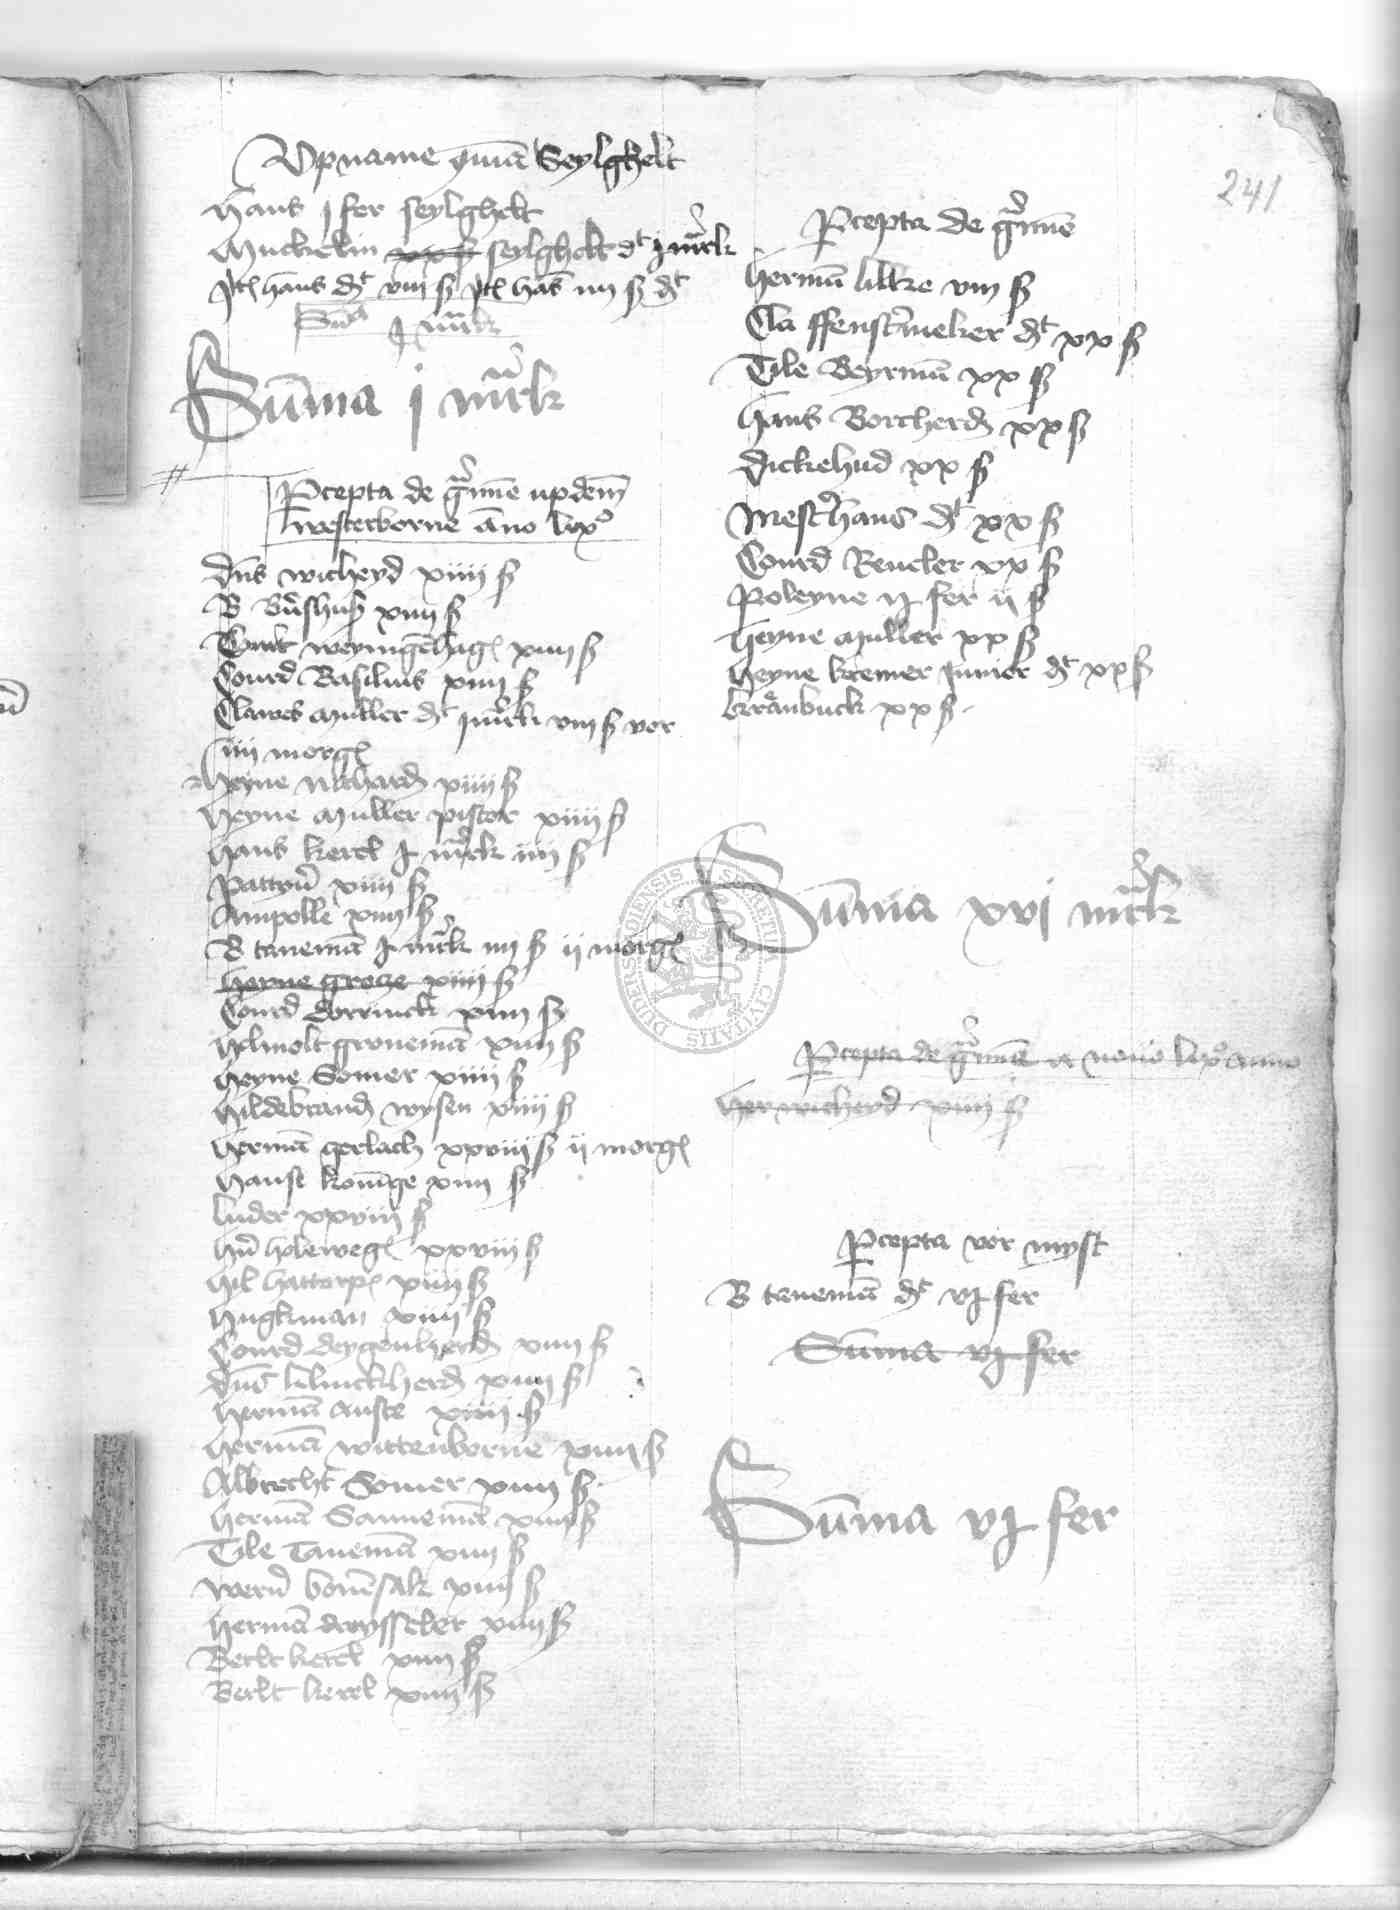 241
Upname Seylghelt
Hans j fer seylghelt
Muckelin seylghelt dt j mrck
Jtem hans dt viij ß Jtem hans iiij ß dt
Sũa j mrck
Sũma j mrck
Pcepta de grĩme updem
westerborne āno lix°
dns wicheyd xiiij ß
B xiiij ß
Curt weyngehag xiiij ß
Courd Basilius xiiij ß
Clawes Muller dt j mrck viij ß vor
iiij morg
Heyne Richard xiiij ß
Heyne Muller pistor xiiij ß
Hans kerel j mrck iiij ß
xiiij ß
Ampolle xiiij ß
B tanemã j mrck iiij ß ij morg
Heyne grote xiiij ß
Courd Dorrinck xiiij ß
Helmolt gronemã xiiij ß
Heyne Somer xiiij ß
Hildebrand wysen xiiij ß
Hermã gerlach xxviij ß ij morg
Hanse konĩge xiiij ß
luder xxviij ß
holewege xxviij ß
Hil hattorpe xiiij ß
Hugkman xiiij ß
Courd deygenherd xiiij ß
dns klinckherd xiiij ß
Hermã Auste xiiij ß
Hermã wittenborne xiiij ß
Albrecht Somer xiiij ß
Hermã Sannemã xiiij ß
Tile Tanemã xiiij ß
wern xiiij ß
Hermã drysseler xiiij ß
Bertlt kerel xiiij ß
Bertlt kerel xiiij ß
Pcepta de grĩme
Hermã lutke viij ß
Cla ffenstermeker dt xx ß
Tile Beyrmã xx ß
Hans Borcherd xx ß
dickehud xx ß
Mester hans dt xx ß
Courd Reucler xx ß
Poleyne ij fer ij ß
Heyne Muller xx ß
Heyne kremer Junior dt xx ß
kranbuck xx ß
Sũma xvi mrck
Pcepta de grĩme a novo lix° anno
Her wicheyd xiiij ß
Pcepta vor myst
B tanemã dt vj fer
Sũma vj fer
Sũma vj fer